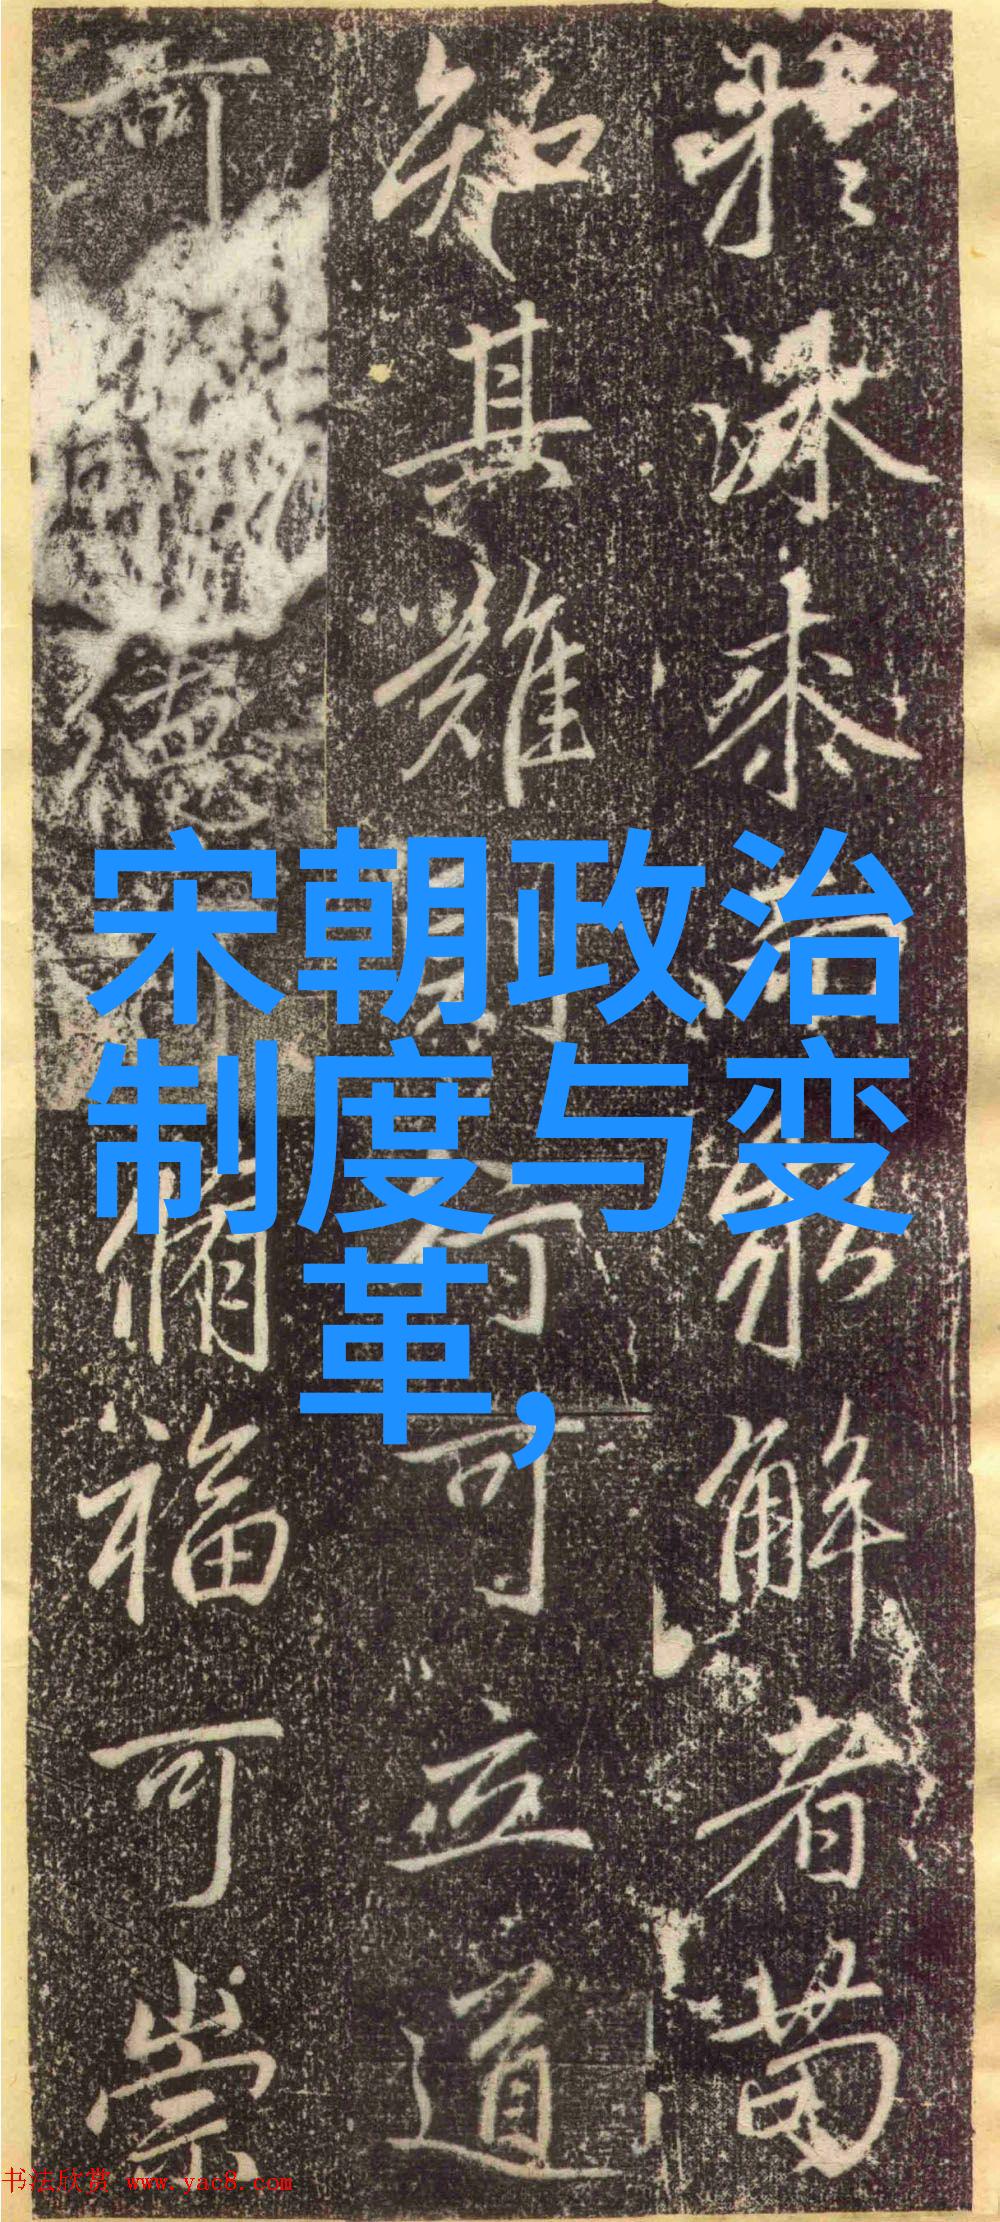 解者苟
知其難則行可立道
可德可脩福可崇
宋朝政治
制度与变
革,
书法欣赏 www.yac8.com